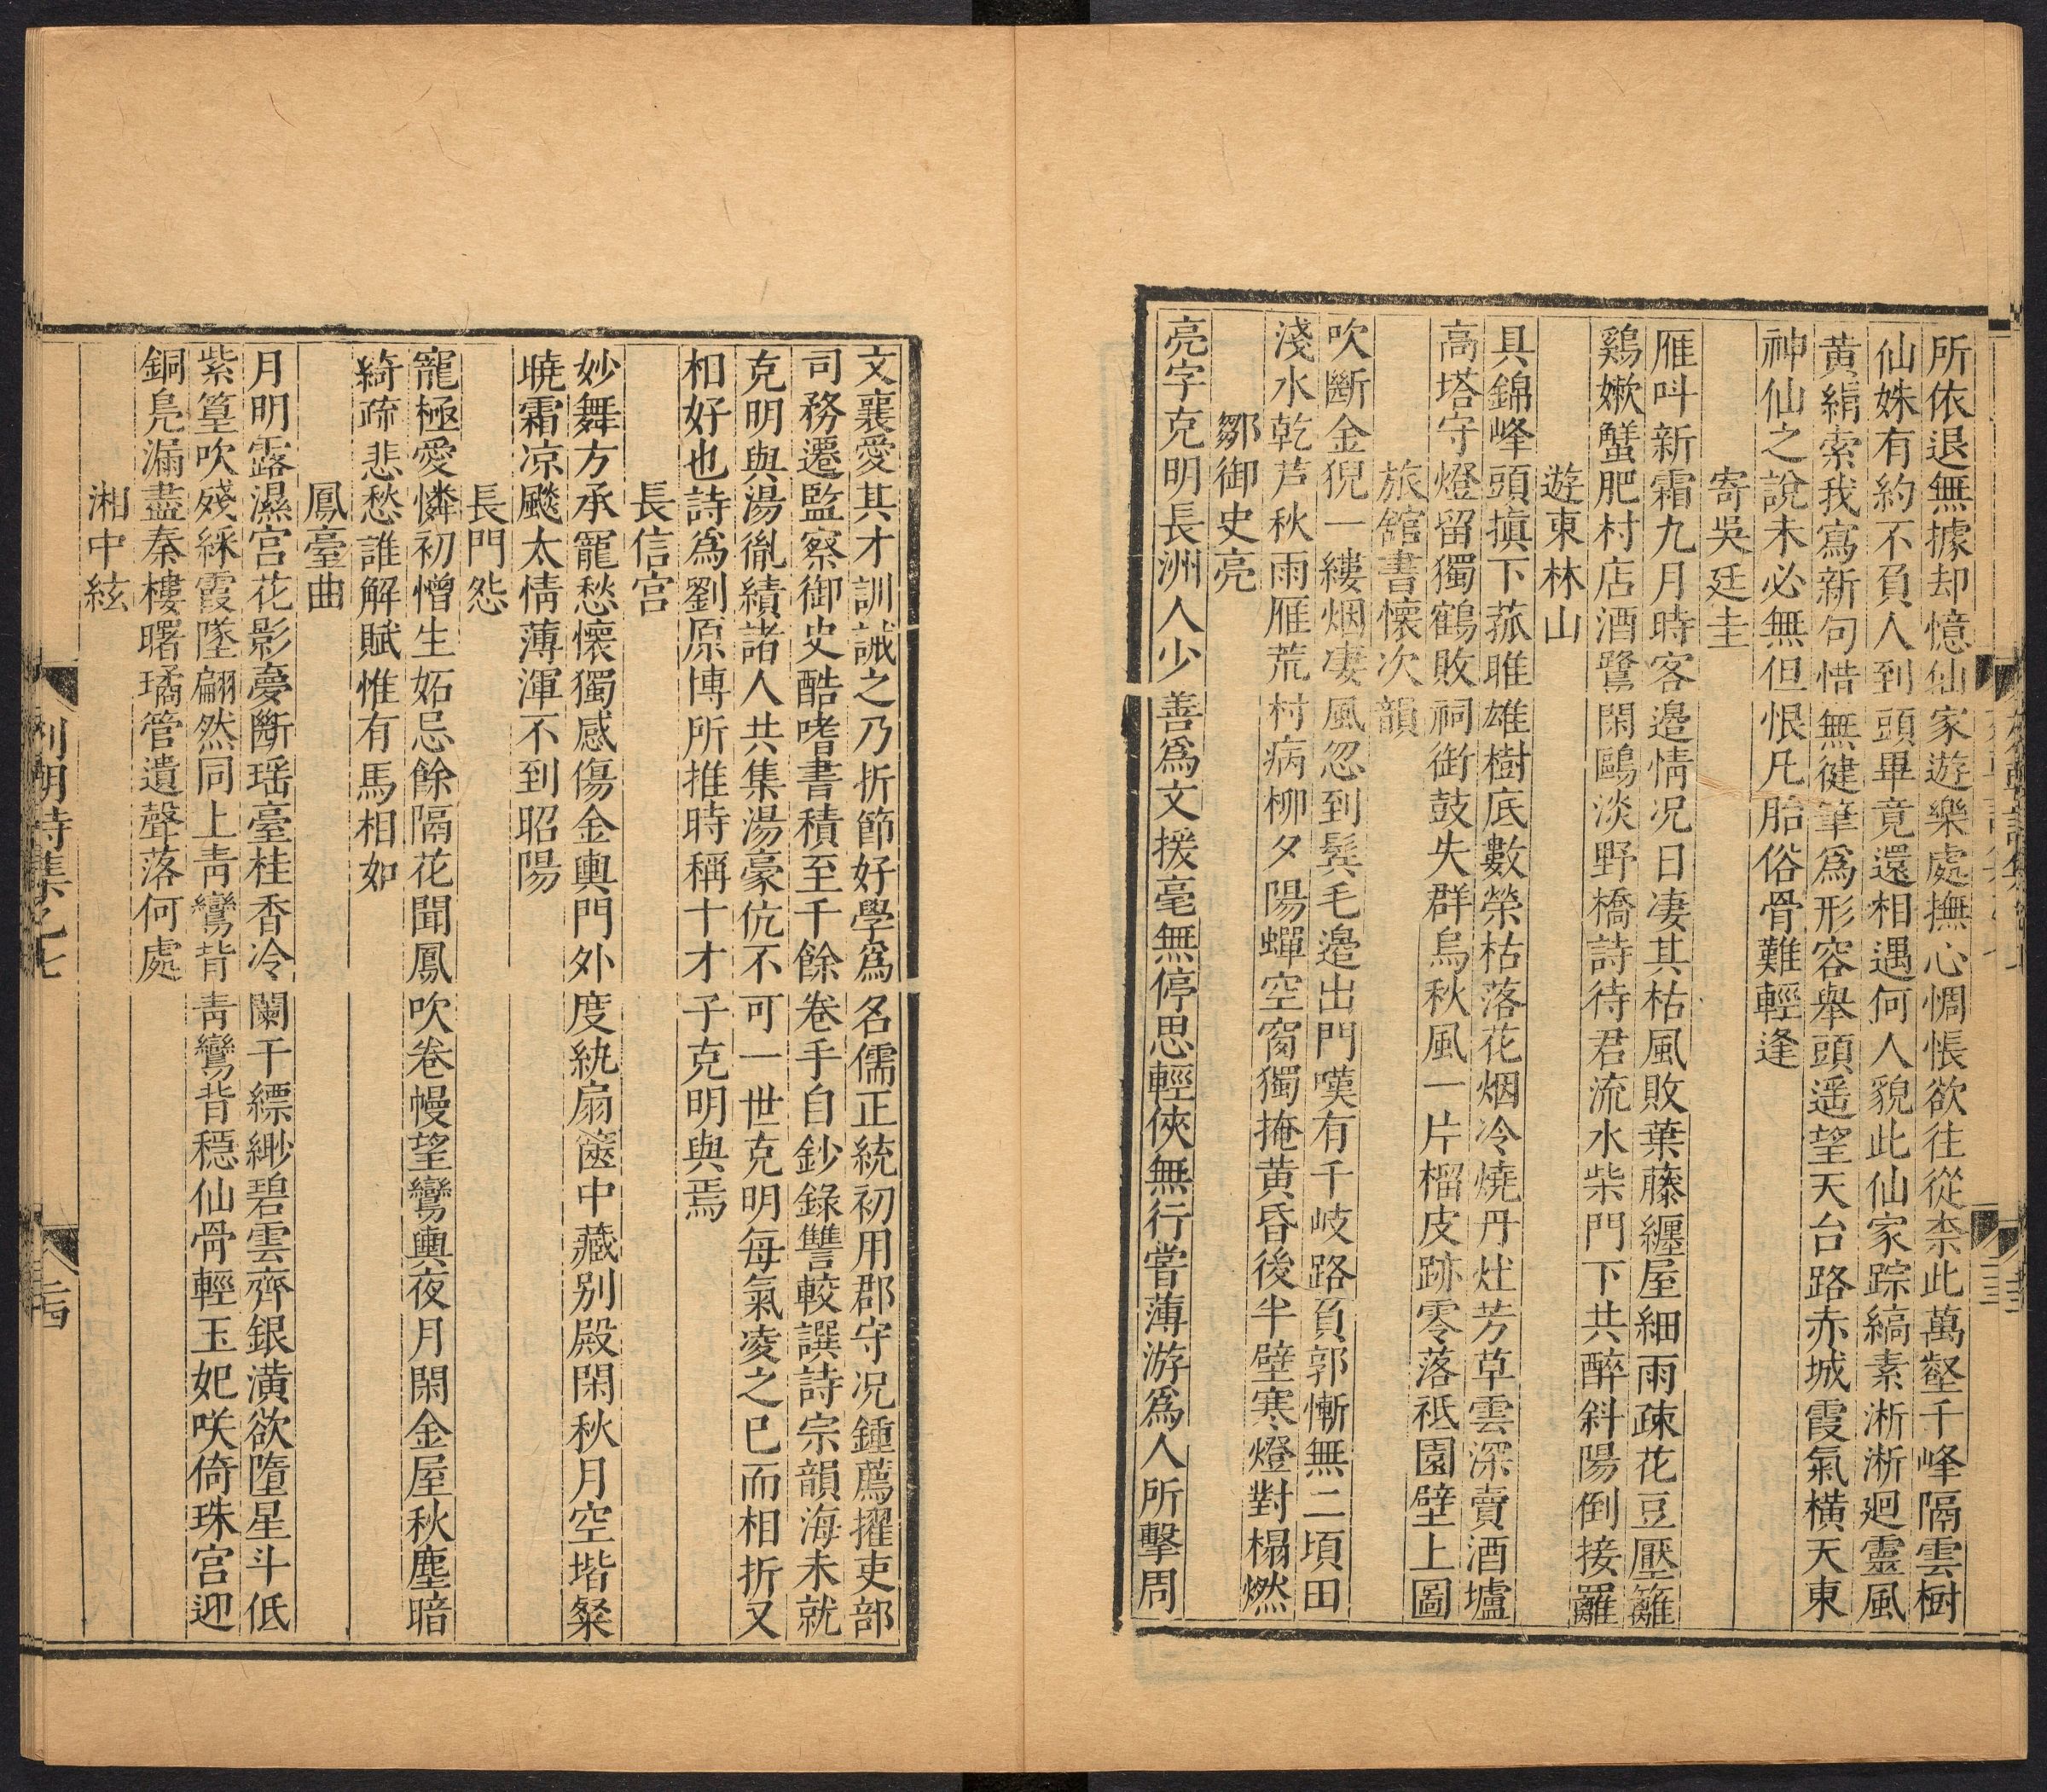 所依退無據却憶仙家遊樂處撫心惆悵欲往從柰此萬壑千峰隔雲樹
仙姝有約不負人到頭畢竟還相遇何人貌此仙家踪縞素淅淅廻靈風
黄絹索我寫新句惜無健筆爲形容舉頭遥望天台路赤城霞氣橫天東
神仙之說未必無但恨凡胎俗骨難輕逢
寄吳廷圭
雁呌新霜九月時客邊情况日凄其枯風敗葉藤纏屋細雨疎花豆壓籬
鷄嫰蟹肥村店酒鷺閑鷗淡野橋詩待君流水柴門下共醉斜陽倒接䍦
遊東林山
具錦峰頭搷下菰雎雄樹底數榮枯落花烟冷燒丹灶芳草雲深賣酒壚
高塔守燈留獨鶴敗祠衙鼓失群烏秋風一片榴皮跡零落祗園壁上圖
旅舘書懷次韻
吹斷金猊一縷烟凄風忽到鬂毛邉出門嘆有千岐路負郭慚無二頃田
淺水乾芦秋雨雁荒村病柳夕陽蟬空窗獨掩黄昏後半壁寒燈對榻燃
鄒御史亮
亮字克明長洲人少善爲文援毫無停思輕俠無行嘗薄游爲人所擊周
文襄愛其才訓誡之乃折節好學爲名儒正統初用郡守况鍾薦擢吏部
司務遷監察御史酷嗜書積至千餘卷手自鈔錄讐較譔詩宗韻海未就
克明與湯胤績諸人共集湯豪伉不可一世克明每氣凌之巳而相折又
相好也詩爲劉原博所推時稱十才子克明與焉
長信宮
妙舞方承寵愁懷獨感傷金輿門外度紈扇篋中藏别殿閑秋月空堦粲
曉霜凉颷太情薄渾不到昭陽
長門怨
寵極愛憐初憎生妬忌餘隔花聞鳳吹卷幔望鸞輿夜月閑金屋秋塵暗
綺疏悲愁誰解賦惟有馬相如
鳳臺曲
月明露濕宫花影夣斷瑶臺桂香冷闌干縹緲碧雲齊銀潢欲墮星斗低
紫篁吹殘綵霞墜翩然同上青鸞背青鸞背穩仙骨輕玉妃咲倚珠宫迎
銅鳬漏盡秦樓曙璚管遺聲落何處
湘中絃
列朝詩集乙七
二十四